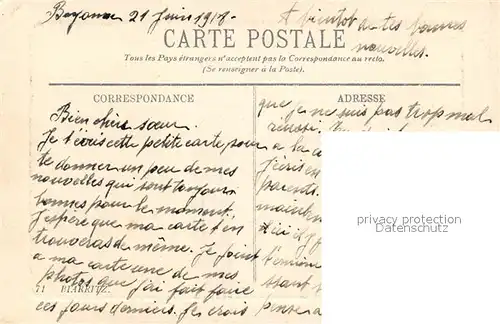 Bayonne 21 Juin 1918.
A bientôt de tes bonnes
nouvelles.
CARTE POSTALE
Tous les Pays étrangers n'acceptent pas la Correspondance au recto.
(Se renseigner à la Poste).
CORRESPONDANCE
Bien chère sœur.
Je t'écris cette petite carte pour
te donner un peu de mes
nouvelles qui sont toujours
bonnes pour le moment.
J'espère que ma carte t'en
trouveras de même. Je joint
a ma carte une de mes
photos que j'ai fait faire
71 BIARRITZ.
ces jours derniers. Je crois
ADRESSE
que je ne suis pas trop mal
a la
j'écris
parents.
pense a
privacy protection
watermark